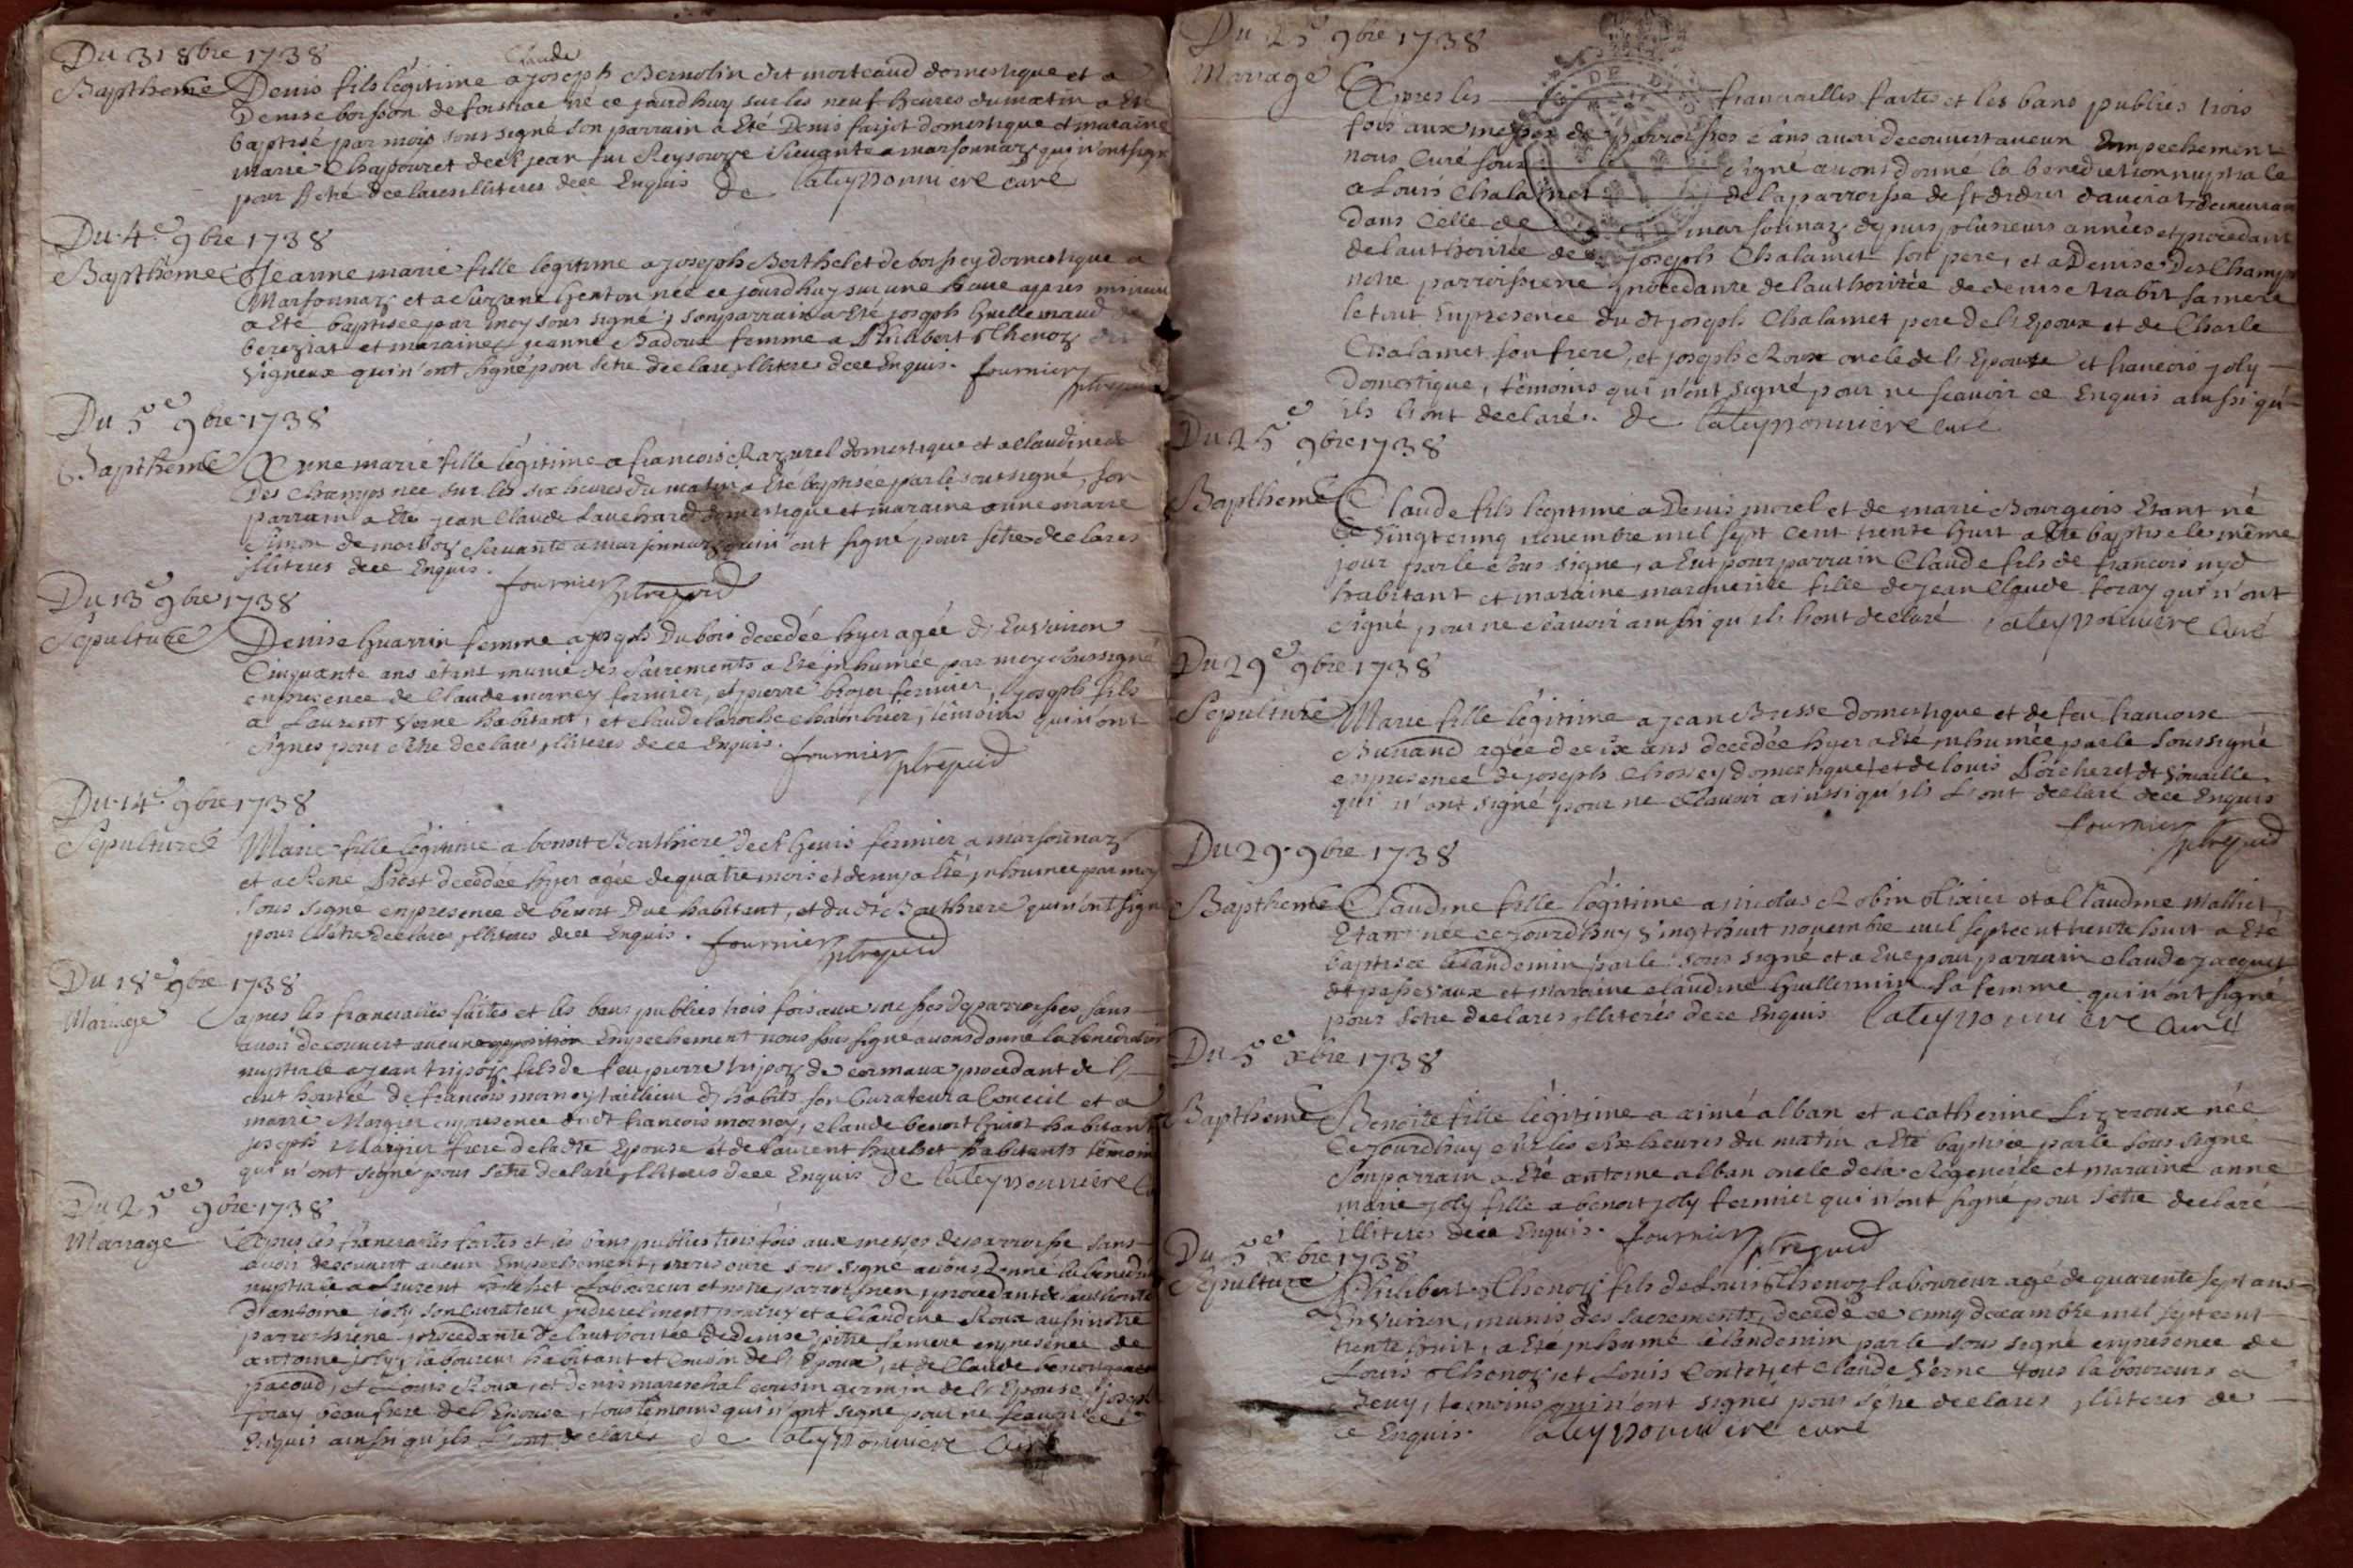 Du 31 8bre 1738
Claude
Baptheme Denis fils légitime a joseph Bernolin dit morteaud domestique et a
Denise boisson de foissiac né ce jourdhuy sur les neuf heures du matin a Eté
baptisé par mois sous signé son parrain a Eté Denis farjot domestique et maraine
marie Chapouret de st jean sur Reysouze servante a marsonnaz qui n'ont signé
pour setre declares illiteres de ce Enquis de lateyssonniere curé
Du 4e 9bre 1738
Bapthême Jeanne marie fille legitime a joseph Berthelet de boissey domestique a
Marsonnaz et a Suzane genton née ce jourdhuy sur une heure apres minuit
a Eté baptisée par moy sous signé, son parrain a Eté joseph Guillemaud de
bereziat et maraine jeanne Badoux femme a Philibert Thenoz des
Vigneux qui n'ont signé pour setre declares illiteres de ce Enquis. fournier
Du 5e 9bre 1738
Baptheme Anne marie fille légitime a francois Razurel domestique et a Claudine
Des Champs née sur les six heures du matin a Eté baptisée par le soussigné, son
parrain a Ete jean Claude Sauchard domestique et maraine anne marie
Simon de marboz servante a marsonnaz qui n'ont signé pour setre declares
illiteres de ce Enquis. fournier
Du 13e 9bre 1738
Sepulture Denise Guerrin femme a joseph Dubois decedée hyer agée d'Environ
Cinquante ans étant munie des Sacrements a Eté inhumée par moy soussigné
en presence de Claude morney fermier, et pierre fermier, joseph fils
a Laurent Verne habitant, et claude laroche chambrier, têmoins qui n'ont
signés pour setre declares illiteres de ce Enquis. fournier
Du 14e 9bre 1738
Sepulture Marie fille légitime a benoit Bouthiere de st Genis fermier a marsonnaz
et a Rene Prost decedée hyer agée de quatre mois et demy a Eté inhumée par moy
sous signé en presence de benoit Duc habitant, et du dt Bouthiere qui n'ont signé
pour setre declares illiteres de ce Enquis. fournier
Du 18e 9bre 1738
Mariage apres les fiancailles faites et les bans publies trois fois aux messes de parroisses, sans
avoir decouvert aucune opposition Empechement nous sous signé avons donné la benediction
nuptiale a jean tripoz fils de feu pierre tripoz de cormaux procedant de l'
authoritée de francois morney tailleur d'habits son Curateur a Conceil et a
marie Margier en presence du dt francois morney, claude benoit habitant
joseph Margier frere de la dte Epouse et de laurent huchet habitants têmoins
qui n'ont signé pour setre declares illiteres de ce Enquis de lateyssonniere
Du 25e 9bre 1738
Mariage Apres les fiancailles faites et les bans publies trois fois aux messes de parroisse sans
avoir decouvert aucun Empechement, nous curé sous signé avons donné la benediction
nuptiale a Laurent huchet Laboureur et notre parroissien, procedant de l'authorité
d'antoine joly son curateur et a Claudine Roux aussi notre
parroissiene procedante de l'authoritée de denise sa mere en presence de
antoine joly, laboureur habitant et Cousin de l'Epoux, et de Claude
pacoud, et Louis Roux, et denis mareschal cousin germain de l'Epouse, joseph
foray beaufrere de l'Epouse, tous temoins qui n'ont signé pour ne scavoir de ce
Enquis ainsi qu'ils l'ont declares de lateyssonniere Curé
Du 25e 9bre 1738
Mariage Apres les fiancailles faites et les bans publiés trois
fois aux messes de parroisses sans avoir decouvert aucun Empechement
nous Curé sous signé avons donné la benediction nuptiale
a Louis Chalamet de la parroisse de st didier d'auciat demeurant
dans Celle de marsonnaz depuis plusieurs années et procedant
de l'authoritée de joseph Chalamet son pere, et a Denise Des Champs
notre parroissiene procedante de l'authoritée de denise trabit sa mere
le tout En presence du dt joseph Chalamet pere de l'Epoux et de Charle
Chalamet son frere, et joseph Roux oncle de l'Epouse et francois joly
Domestique, têmoins qui n'ont signé pour ne scavoir ce Enquis ainsi qu'
ils l'ont declaré. de lateyssonniere curé
Du 25e 9bre 1738
Baptheme Claude fils légitime a Denis morel et de marie Bourgeois Etant né
le Vingtcinq novembre mil sept cent trente huit a Eté baptisé le même
jour par le sous signé, a Eut pour parrain Claude fils de francois nyd
habitant et maraine marguerite fille de jean Claude foray qui n'ont
signé pour ne scavoir ainsi qu'ils l'ont declaré lateyssonniere Curé
Du 29e 9bre 1738
Sepulture Marie fille légitime a jean Bresse domestique et de feu francoise
Bunand agée de dix ans decedée hyer a Eté inhumée par le soussigné
en presence de joseph Chossey domestique, et de louis Porcheret dt Vouaille
qui n'ont signé pour ne scavoir ainsi qu'ils l'ont declaré de ce Enquis
fournier
Du 29. 9bre 1738
Baptheme Claudine fille légitime a nicolas Robin tixier et a Claudine Mallet
Etant née ce jourdhuy Vingthuit novembre mil septcent trente huit a Eté
baptisée le landemin par le sous signé et a Eue pour parrain claude jacquet
dt passevaux et Maraine claudine Guillemin sa femme qui n'ont signé
pour setre declares illiterés de ce Enquis lateyssonniere Curé
Du 5e xbre 1738
Baptheme Benoite fille légitime a aimé alban et a catherine Lizeroux née
ce jourdhuy sur les six heures du matin a Eté baptisée par le sous signé
Son parrain a Eté antoine alban oncle de la Régénérée et maraine anne
marie joly fille a benoit joly fermier qui n'ont signé pour setre declaré
illiteres de ce Enquis. fournier
Du 5e xbre 1738
Sépulture Philibert Thenoz fils de Louis Thenoz laboureur agé de quarente sept ans
Environ, munis des sacrements, decedé ce cinq decembre mil septcent
trente huit, a Eté inhumé le landemin par le sous signé en presence de
Louis Thenoz, et Louis Contet, et Claude Verne tous laboureurs a
jeuy, temoins qui n'ont signés pour sêtre declares illiteres de
ce Enquis. lateyssonniere curé